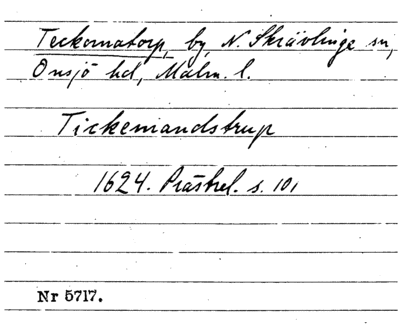 Teckomatorp, by, N. Skrävlinge sn,
Onsjö hd, Malm. l.
Tickemandstrup
1624. Prästrel. s. 101
Nr 5717.